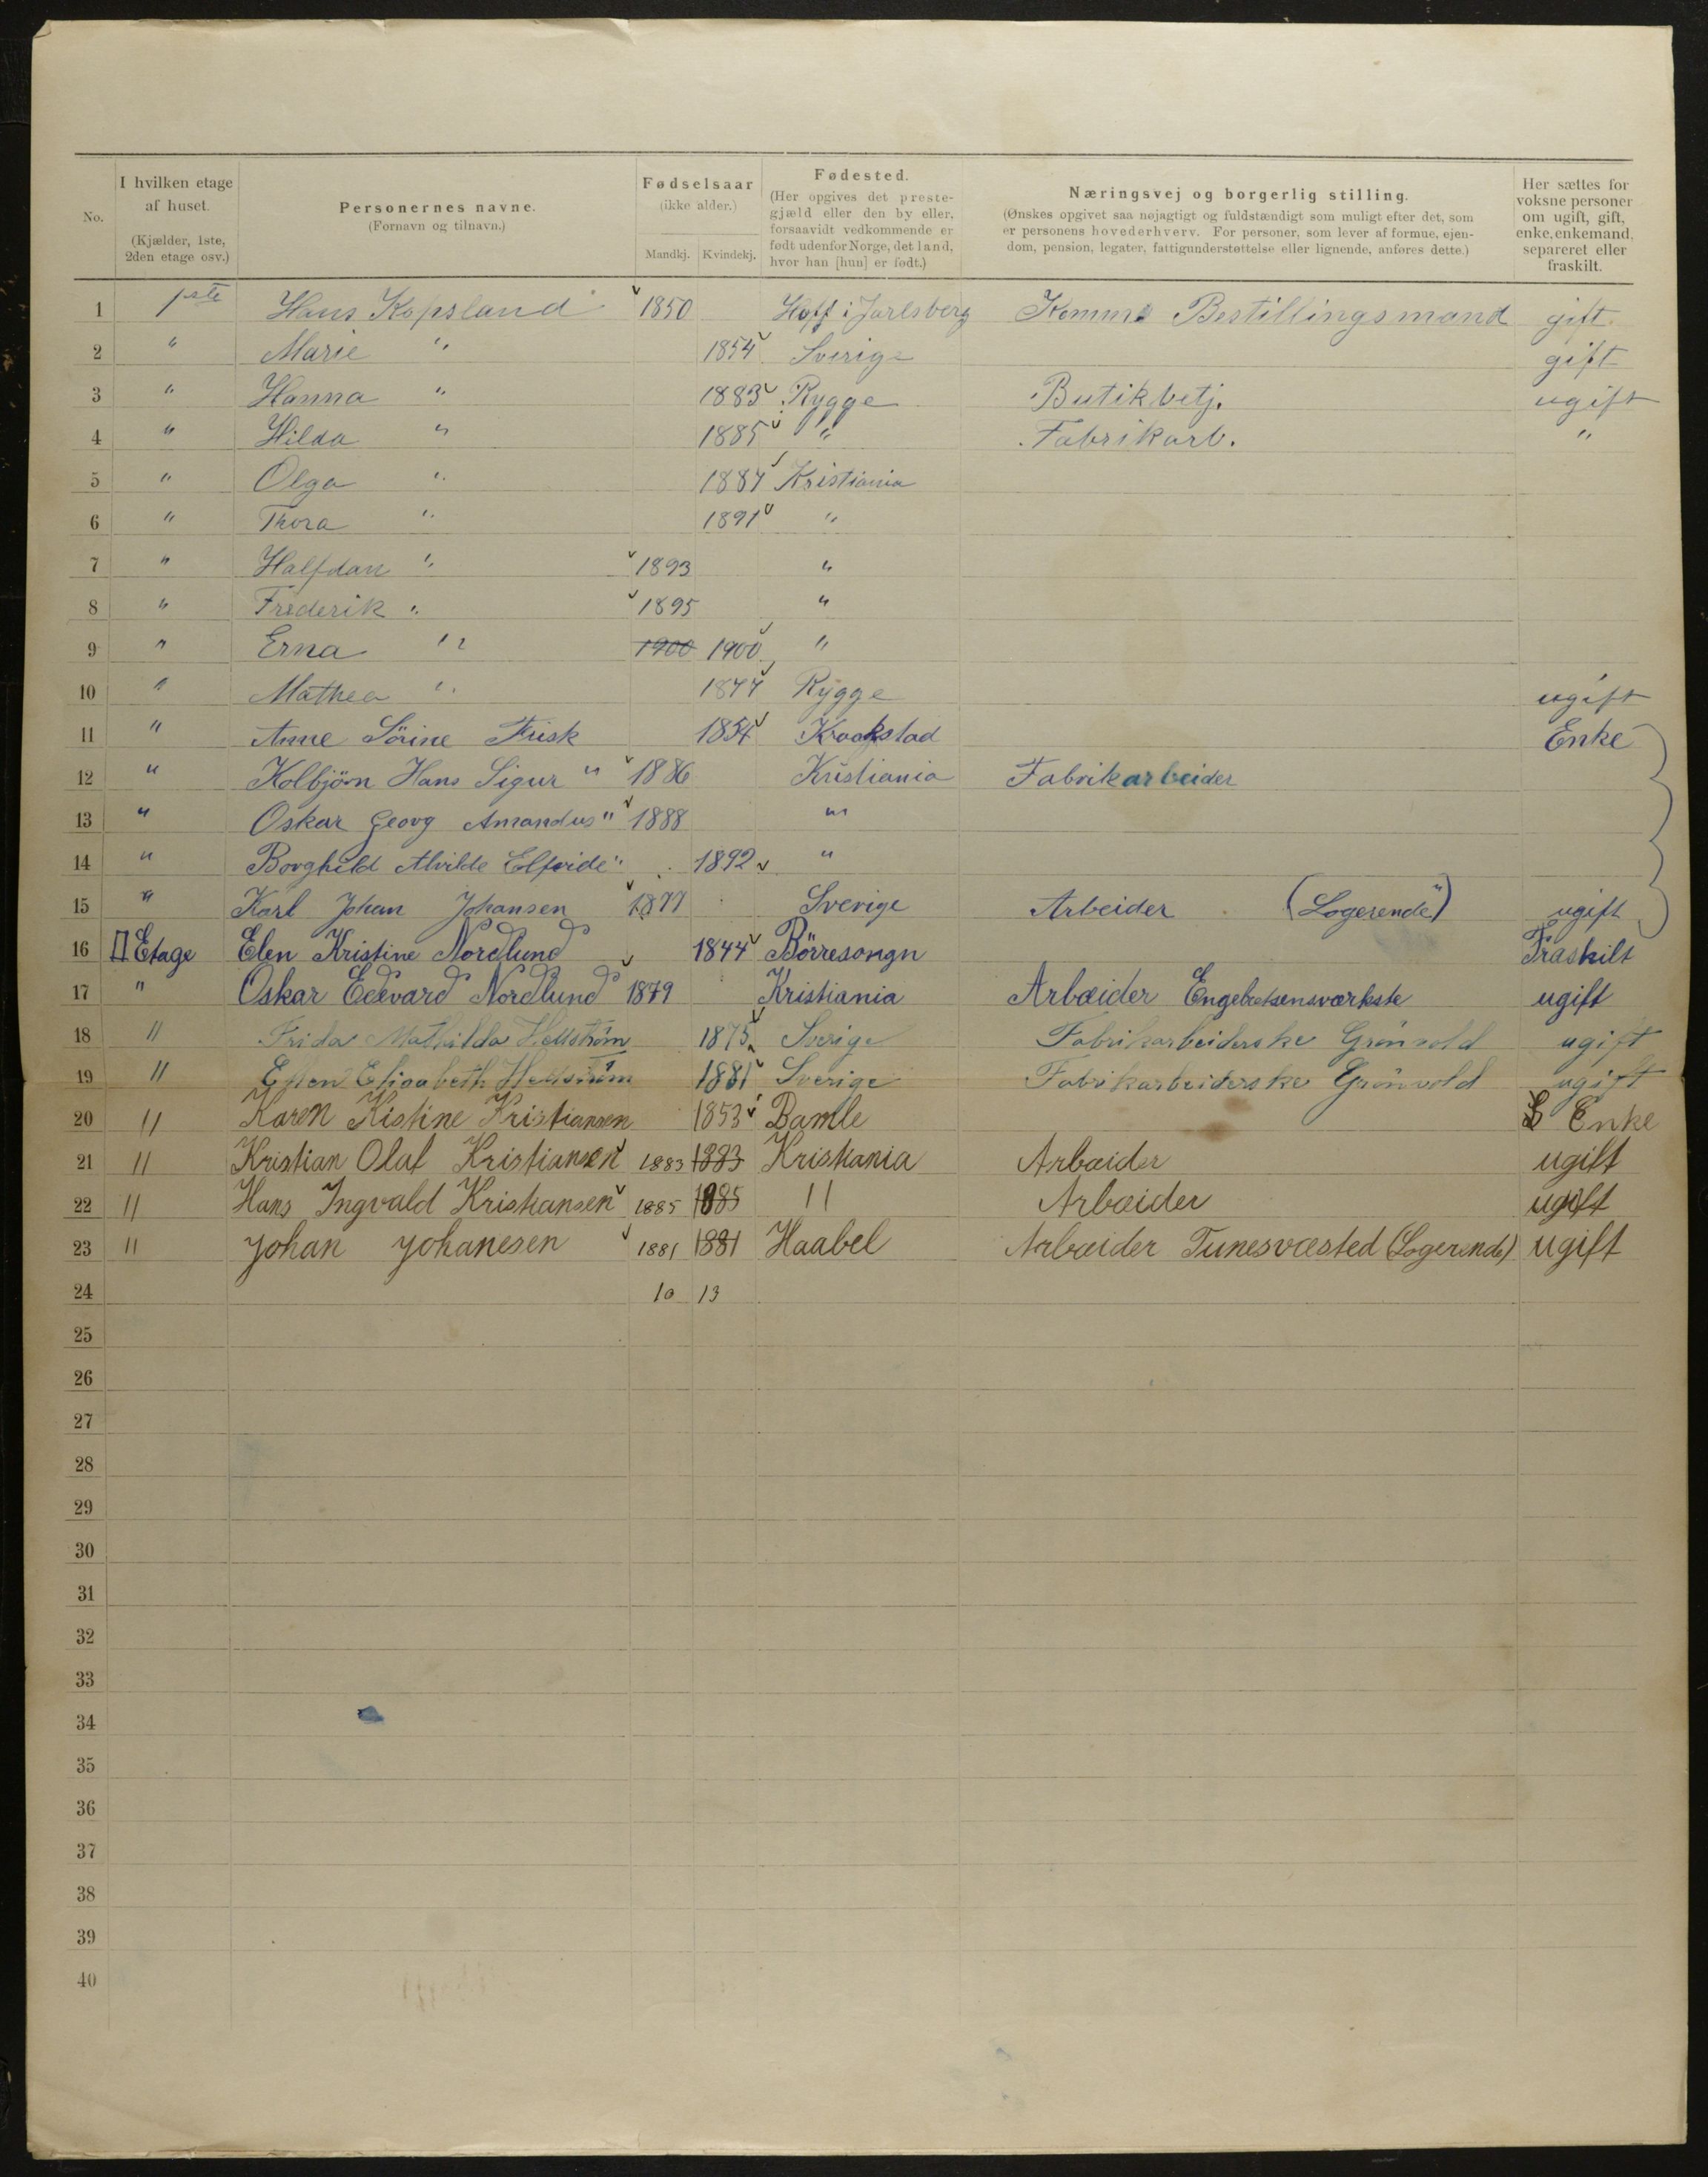 No.
I hvilken etage af huset. (Kjælder, 1ste, 2den etage osv.)
Personernes navne. (Fornavn og tilnavn.)
Fødselsaar (ikke alder.) Mandkj. Kvindekj.
Fødested. (Her opgives det prestegjæld eller den by eller, forsaavidt vedkommende er født udenfor Norge, det land, hvor han [hun] er født.)
Næringsvej og borgerlig stilling. (Ønskes opgivet saa nøjagtigt og fuldstændigt som muligt efter det, som er personens hovederhverv. For personer, som lever af formue, ejendom, pension, legater, fattigunderstøttelse eller lignende, anføres dette.)
Her sættes for voksne personer om ugift, gift, enke, enkemand, separeret eller fraskilt.
1 1ste Hans Kopsland 1850 Hoff i Jarlsberg Komm. Bestillingsmand gift
2 " Marie " 1854 Sverige gift
3 " Hanna " 1883 Rygge Butikbetj. ugift
4 " Hilda " 1885 " Fabrikarb. "
5 " Olga " 1887 Kristiania
6 " Thora " 1891 "
7 " Halfdan " 1893 "
8 " Frederik " 1895 "
9 " Erna " 1900 1900 "
10 " Mathea " 1877 Rygge ugift
11 " Anne Sörine Frisk 1854 Kraakstad Enke
12 " Kolbjörn Hans Sigur " 1886 Kristiania Fabrikarbeider
13 " Oskar Georg Amandus " 1888 "
14 " Borghild Alvilde Elfride " 1892 "
15 " Karl Johan Johansen 1877 Sverige Arbeider (Logerende) ugift
16 II Etage Elen Kristine Nordlund 1844 Börresongn Fraskilt
17 " Oskar Edevard Nordlund 1879 Kristiania Arbæider Engebretsensværkste ugift
18 " Frida Mathilda Hellström 1875 Sverige Fabrikarbeiderske Grönvold ugift
19 " Ellen Elisabeth Hellström 1881 Sverige Fabrikarbeiderske Grönvold ugift
20 " Karen Kistine Kristiansen 1853 Bamle Enke
21 " Kristian Olaf Kristiansen 1883 1883 Kristiania Arbæider ugift
22 " Hans Ingvald Kristiansen 1885 1885 " Arbæider ugift
23 " Johan Johanesen 1881 1881 Haabel Arbæider Tunesvæsted (Logerende) ugift
24 10 13
25
26
27
28
29
30
31
32
33
34
35
36
37
38
39
40